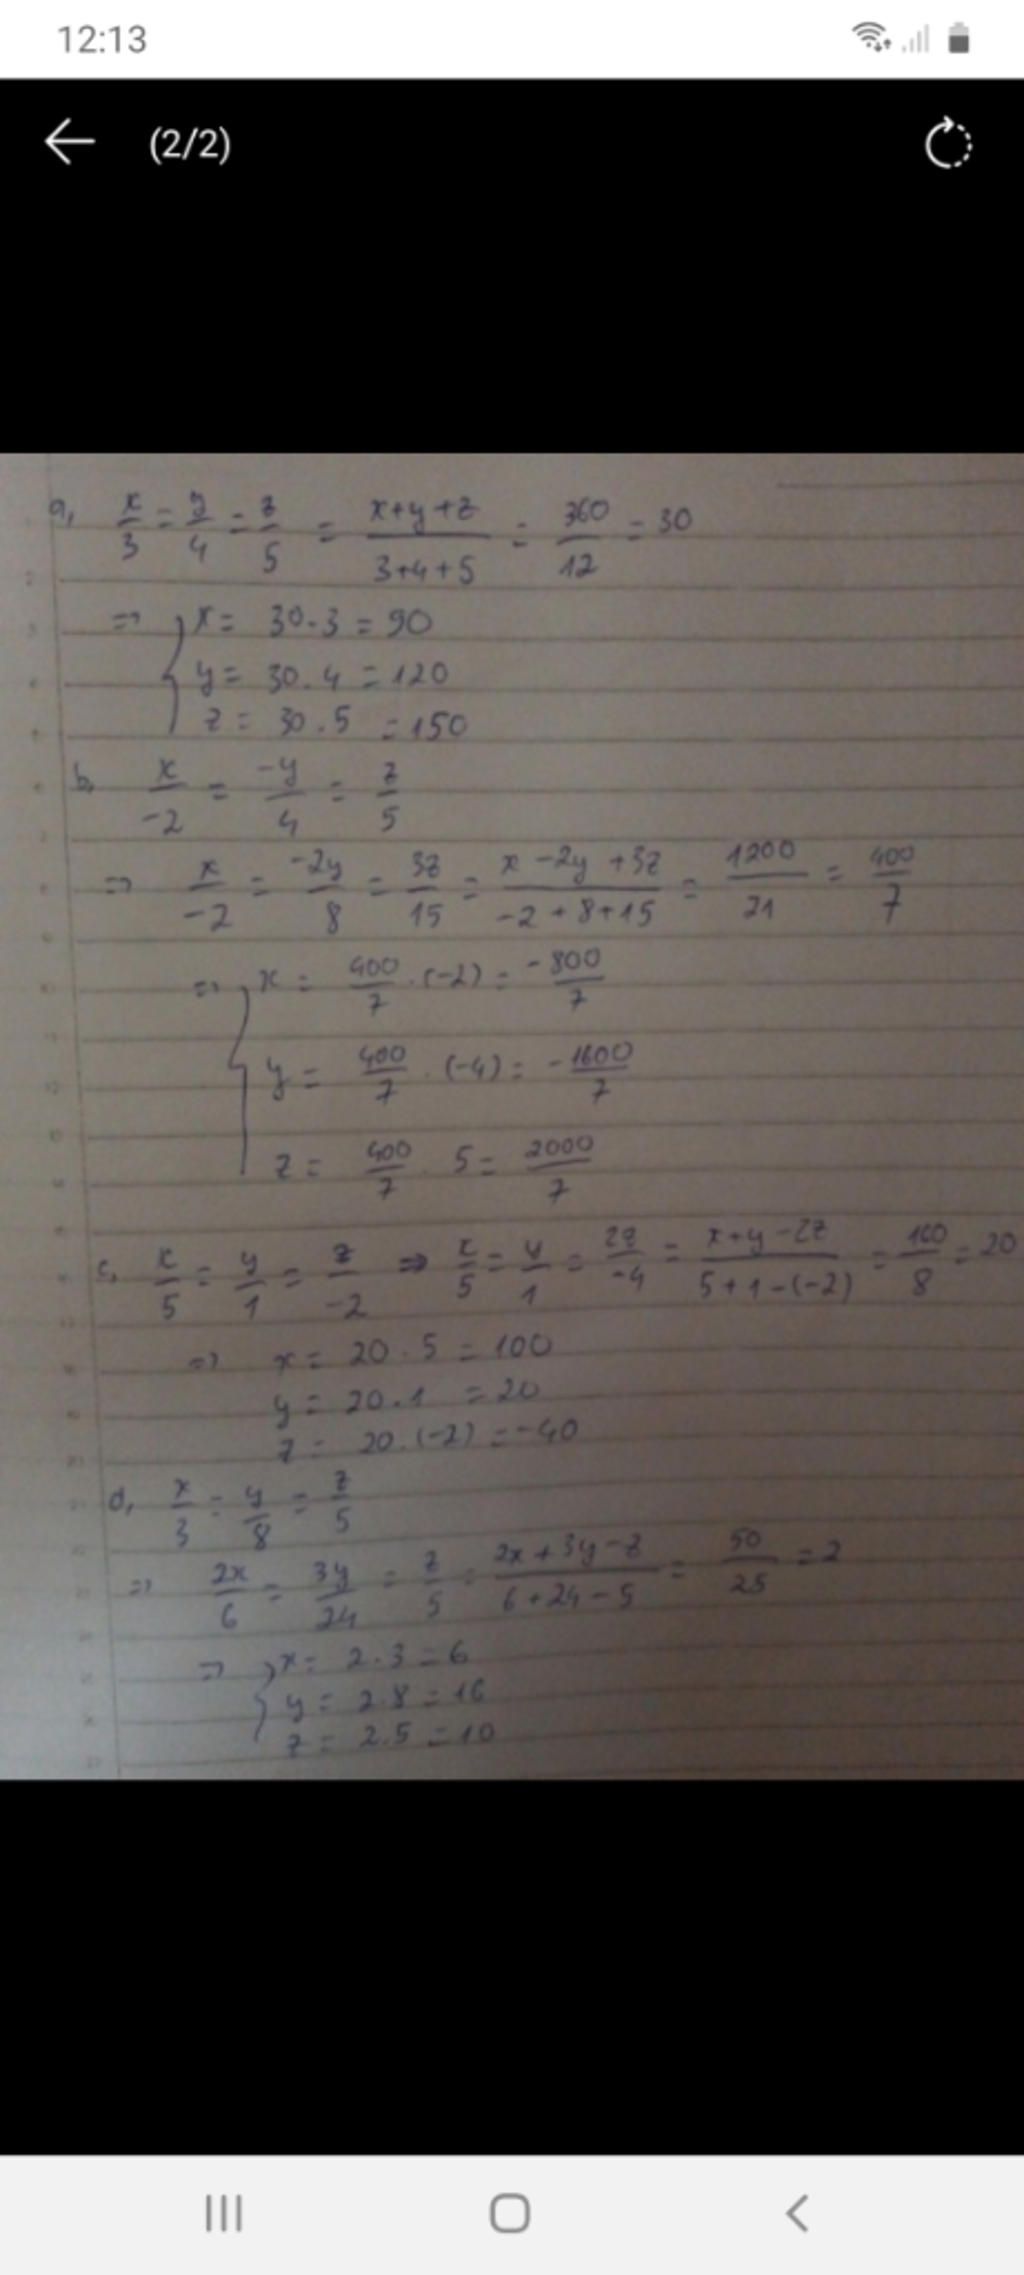 12:13
(2/2)
a, x/3 = y/4 = z/5 = x+y+z/3+4+5 = 360/12 = 30
=> { x = 30.3 = 90
y = 30.4 = 120
z = 30.5 = 150
b, x/-2 = -y/4 = z/5
=> x/-2 = -2y/8 = 3z/15 = x-2y+3z/-2+8+15 = 1200/21 = 400/7
=> { x = 400/7 . (-2) = -800/7
y = 400/7 . (-4) = -1600/7
z = 400/7 . 5 = 2000/7
c, x/5 = y/1 = z/-2 => x/5 = y/1 = 2z/-4 = x+y-2z/5+1-(-2) = 160/8 = 20
=> x = 20.5 = 100
y = 20.1 = 20
z = 20.(-2) = -40
d, x/3 = y/8 = z/5
=> 2x/6 = 3y/24 = z/5 = 2x+3y-z/6+24-5 = 50/25 = 2
=> { x = 2.3 = 6
y = 2.8 = 16
z = 2.5 = 10